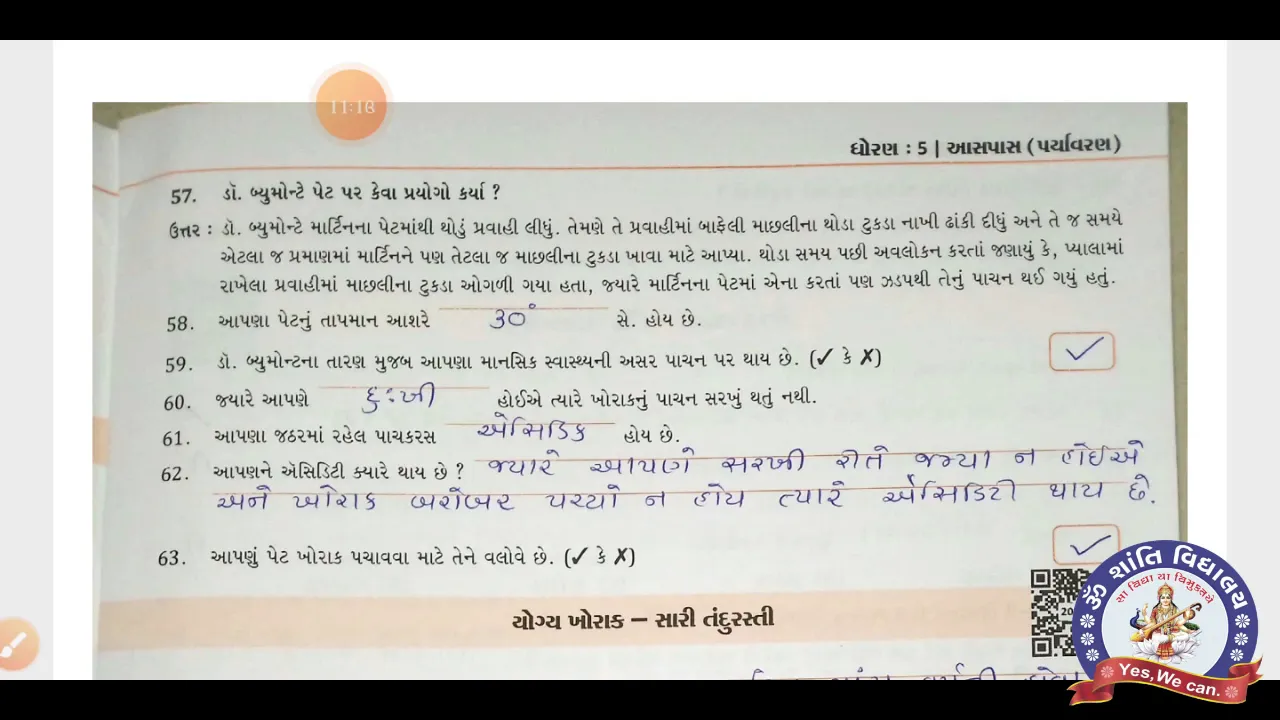 11:18
ધોરણ : 5 | આસપાસ (પર્યાવરણ)
57. ડૉ. બ્યુમોન્ટે પેટ પર કેવા પ્રયોગો કર્યા ?
ઉત્તર : ડૉ. બ્યુમોન્ટે માર્ટિનના પેટમાંથી થોડું પ્રવાહી લીધું. તેમણે તે પ્રવાહીમાં બાફેલી માછલીના થોડા ટુકડા નાખી ઢાંકી દીધું અને તે જ સમયે
એટલા જ પ્રમાણમાં માર્ટિનને પણ તેટલા જ માછલીના ટુકડા ખાવા માટે આપ્યા. થોડા સમય પછી અવલોકન કરતાં જણાયું કે, પ્યાલામાં
રાખેલા પ્રવાહીમાં માછલીના ટુકડા ઓગળી ગયા હતા, જ્યારે માર્ટિનના પેટમાં એના કરતાં પણ ઝડપથી તેનું પાચન થઈ ગયું હતું.
58. આપણા પેટનું તાપમાન આશરે 30° સે. હોય છે.
59. ડૉ. બ્યુમોન્ટના તારણ મુજબ આપણા માનસિક સ્વાસ્થ્યની અસર પાચન પર થાય છે. (✓ કે ✗) ✓
60. જ્યારે આપણે દુ:ખી હોઈએ ત્યારે ખોરાકનું પાચન સરખું થતું નથી.
61. આપણા જઠરમાં રહેલ પાચકરસ એસિડિક હોય છે.
62. આપણને ઍસિડિટી ક્યારે થાય છે ? જ્યારે આપણે સરખી રીતે જમ્યા ન હોઈએ
અને ખોરાક બરોબર પચ્યો ન હોય ત્યારે એસિડિટી થાય છે.
63. આપણું પેટ ખોરાક પચાવવા માટે તેને વલોવે છે. (✓ કે ✗) ✓
યોગ્ય ખોરાક – સારી તંદુરસ્તી
ૐ શાંતિ વિદ્યાલય
સા વિદ્યા યા વિમુક્તયે
Yes, We can.